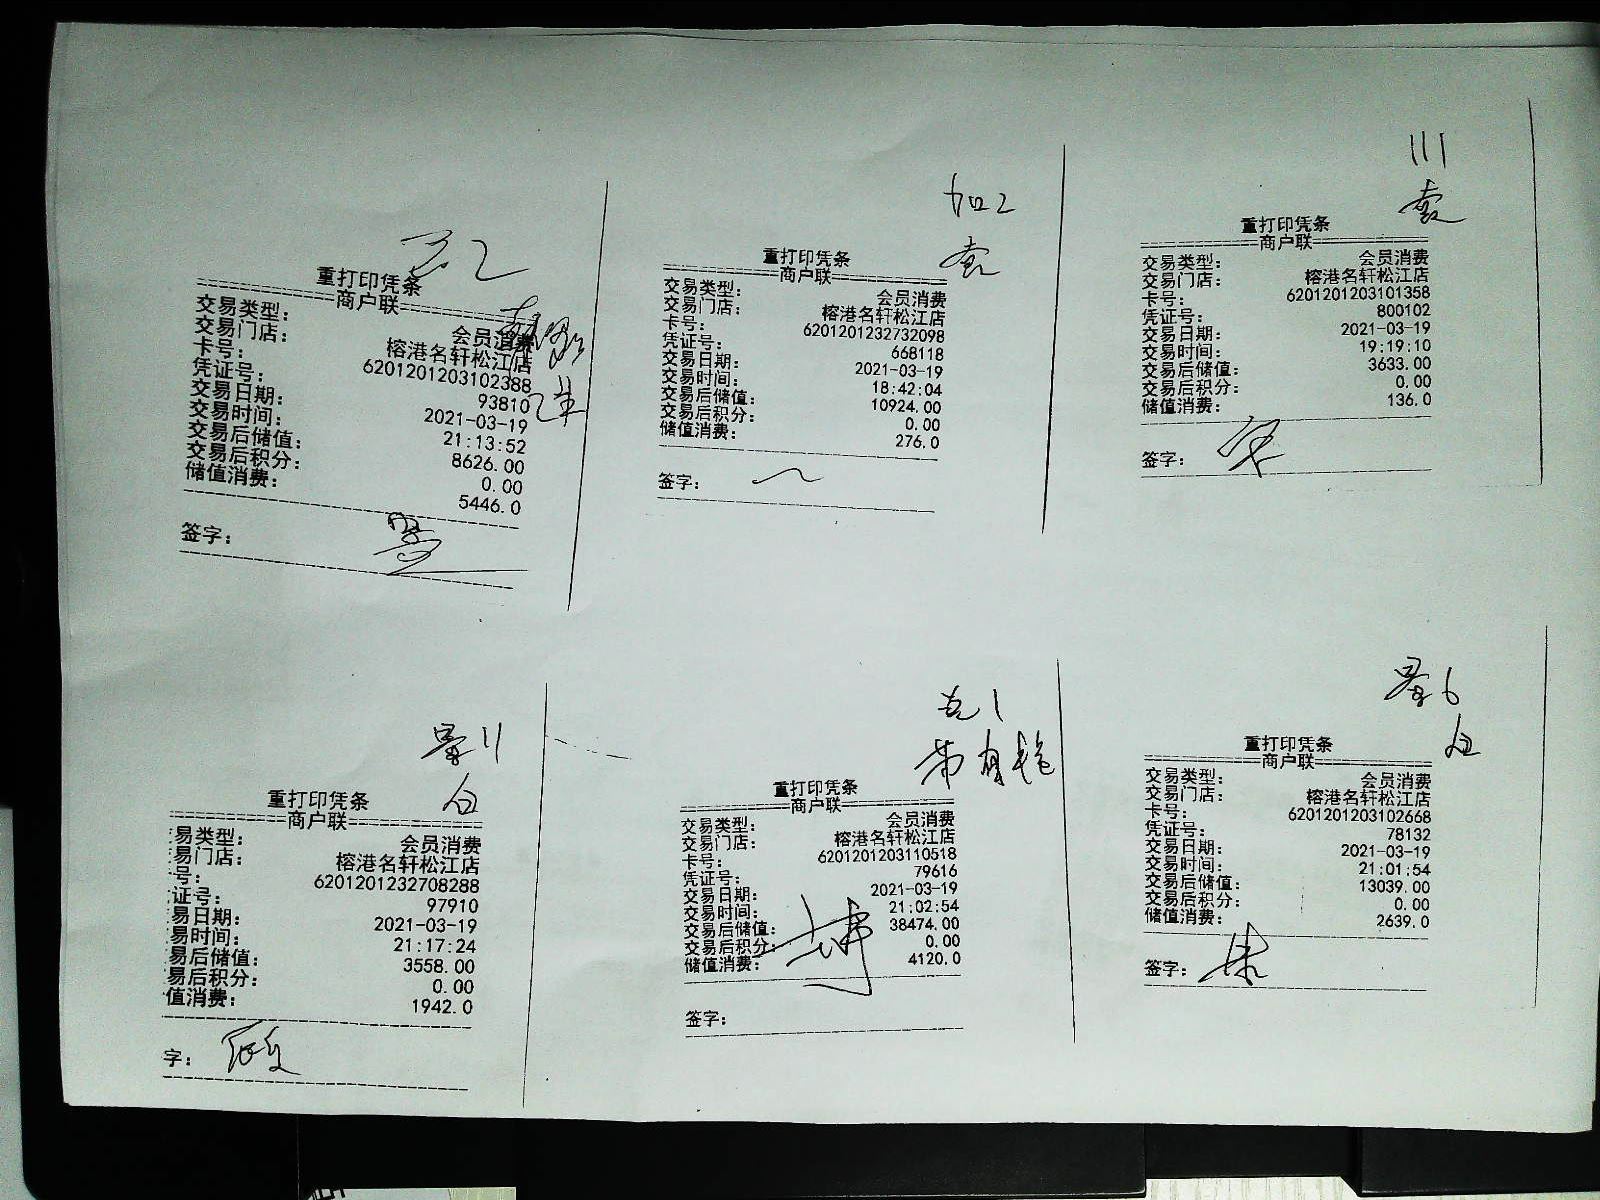 重打印凭条
商户联
交易类型： 会员消费
交易门店： 榕港名轩松江店
卡号： 6201201203102388
凭证号： 93810
交易日期： 2021-03-19
交易时间： 21:13:52
交易后储值： 8626.00
交易后积分： 0.00
储值消费： 5446.0
签字：
加2
重打印凭条
商户联
交易类型： 会员消费
交易门店： 榕港名轩松江店
卡号： 6201201232732098
凭证号： 668118
交易日期： 2021-03-19
交易时间： 18:42:04
交易后储值： 10924.00
交易后积分： 0.00
储值消费： 276.0
签字：
111
重打印凭条
商户联
交易类型： 会员消费
交易门店： 榕港名轩松江店
卡号： 6201201203101358
凭证号： 800102
交易日期： 2021-03-19
交易时间： 19:19:10
交易后储值： 3633.00
交易后积分： 0.00
储值消费： 136.0
签字：
重打印凭条
商户联
易类型： 会员消费
易门店： 榕港名轩松江店
号： 6201201232708288
证号： 97910
易日期： 2021-03-19
易时间： 21:17:24
易后储值： 3558.00
易后积分： 0.00
值消费： 1942.0
字：
重打印凭条
商户联
交易类型： 会员消费
交易门店： 榕港名轩松江店
卡号： 6201201203110518
凭证号： 79616
交易日期： 2021-03-19
交易时间： 21:02:54
交易后储值： 38474.00
交易后积分： 0.00
储值消费： 4120.0
签字：
重打印凭条
商户联
交易类型： 会员消费
交易门店： 榕港名轩松江店
卡号： 6201201203102668
凭证号： 78132
交易日期： 2021-03-19
交易时间： 21:01:54
交易后储值： 13039.00
交易后积分： 0.00
储值消费： 2639.0
签字：